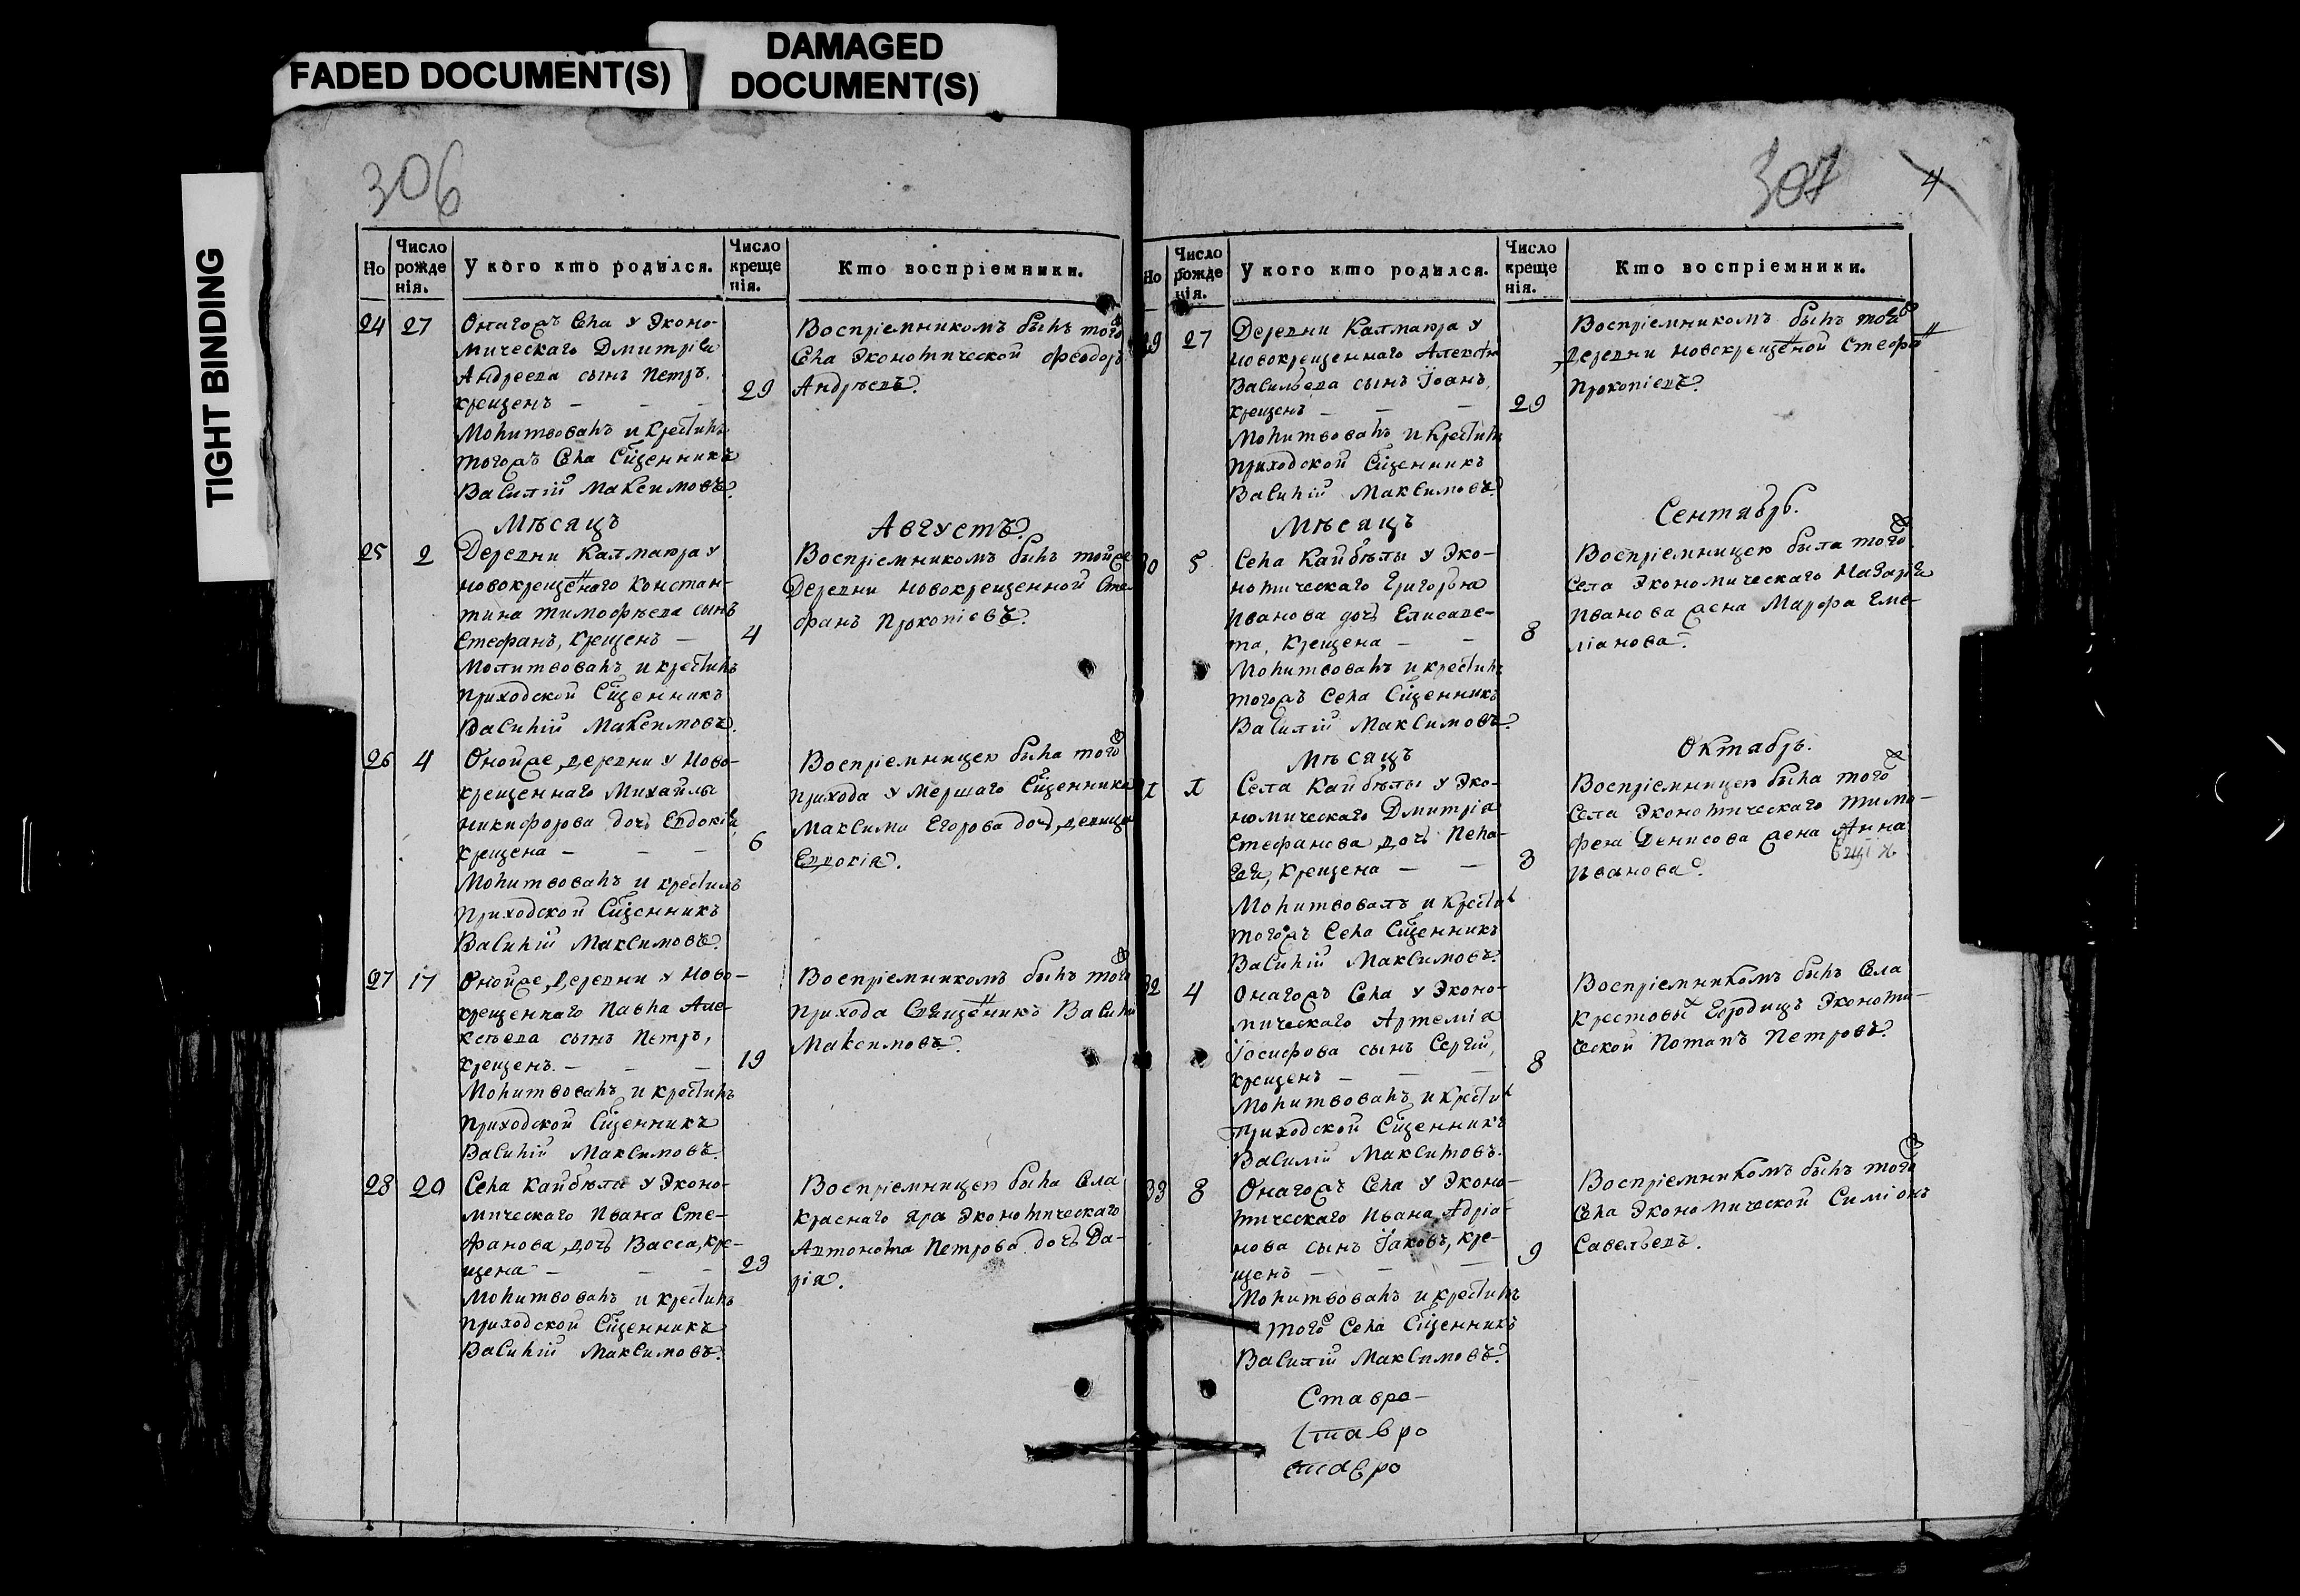 FADED DOCUMENT(S)
DAMAGED
DOCUMENT(S)
TIGHT BINDING
306
Но
Число рожде нія.
У кого кто родился.
Число креще нія.
Кто воспріемники.
24 27
Онагожъ Села у Эконо-
мическаго Дмитрія
Андреева сынъ Петръ,
крещенъ – – – 29
Молитвовалъ и крестилъ
тогожъ Села Сщенникъ
Василій Максимовъ.
Воспріемникомъ былъ того
Села Экономической Феодоръ
Андрѣевъ.
Мѣсяцъ Августъ.
25 2
Деревни Калмаюра у
новокрещеннаго Констан-
тина Тимофѣева сынъ
Стефанъ, крещенъ – 4
Молитвовалъ и крестилъ
приходской Сщенникъ
Василій Максимовъ.
Воспріемникомъ былъ тойже
Деревни новокрещенной Сте-
фанъ Прокопіевъ.
26 4
Онойже деревни у Ново-
крещеннаго Михайла
Никифорова дочь Евдокія,
крещена – – – 6
Молитвовалъ и крестилъ
приходской Сщенникъ
Василій Максимовъ.
Воспріемницею была того
прихода умершаго Сщенника
Максима Егорова дочь девица
Евдокія.
27 17
Онойже деревни у Ново-
крещеннаго Павла Але-
ксѣева сынъ Петръ,
крещенъ. – – – 19
Молитвовалъ и крестилъ
приходской Сщенникъ
Василій Максимовъ.
Воспріемникомъ былъ того
прихода Священникъ Василій
Максимовъ.
28 20
Села Кайбѣлы у Эконо-
мическаго Ивана Сте-
фанова, дочь Васса, кре-
щена – – – 23
Молитвовалъ и крестилъ
приходской Сщенникъ
Василій Максимовъ.
Воспріемницею была Села
Краснаго Яра Экономическаго
Автонома Петрова дочь Да-
рія.
307
4
Но
Число рожде нія.
У кого кто родился.
Число креще нія.
Кто воспріемники.
29 27
Деревни Калмаюра у
новокрещеннаго Алексѣя
Васильева сынъ Іоанъ,
крещенъ – – – 29
Молитвовалъ и крестилъ
приходской Сщенникъ
Василій Максимовъ.
Воспріемникомъ былъ тойже
деревни новокрещеной Стефанъ
Прокопіевъ.
Мѣсяцъ Сентябрь.
30 5
Села Кайбѣлы у Эко-
номическаго Григорья
Иванова дочь Елисаве-
та, крещена – – 8
Молитвовалъ и крестилъ
тогожъ Села Сщенникъ
Василій Максимовъ.
Воспріемницею была того
Села Экономическаго Назарія
Иванова жена Марфа Еме-
ліанова.
Мѣсяцъ Октябрь.
31 1
Села Кайбѣлы у Эко-
номическаго Дмитрія
Стефанова дочь Пела-
гея, крещена – – 3
Молитвовалъ и крестилъ
тогожъ Села Сщенникъ
Василій Максимовъ.
Воспріемницею была того
Села Экономическаго Тимо-
фея Денисова жена Анна
Иванова.
32 4
Онагожъ Села у Эконо-
мическаго Артемія
Іосифова сынъ Сергій,
крещенъ – – – 8
Молитвовалъ и крестилъ
приходской Сщенникъ
Василій Максимовъ.
Воспріемникомъ былъ Села
Крестовы Городищъ Экономи-
ческой Потапъ Петровъ.
33 8
Онагожъ Села у Эконо-
мическаго Ивана Адріа-
нова сынъ Іаковъ, кре-
щенъ – – – 9
Молитвовалъ и крестилъ
того Села Сщенникъ
Василій Максимовъ.
Воспріемникомъ былъ того
Села Экономической Симіонъ
Савельевъ.
Ставро-
Ставро
ставро